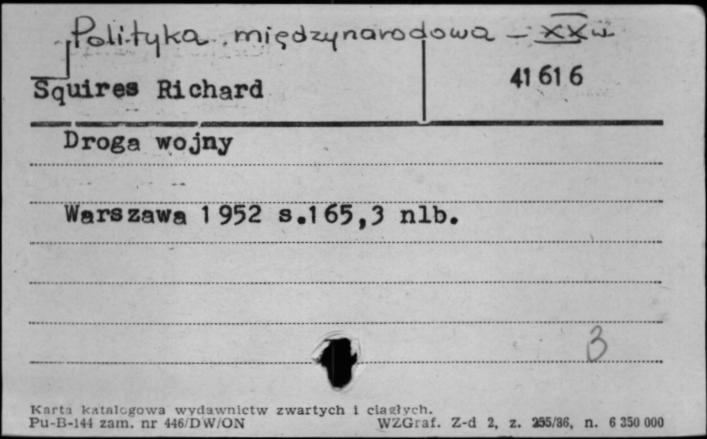 Polityka międzynarodowa – XX w
Squires Richard 41616
Droga wojny
Warszawa 1952 s.165,3 nlb.
3
Karta katalogowa wydawnictw zwartych i ciągłych.
Pu-B-144 zam. nr 446/DW/ON WZGraf. Z-d 2, z. 255/86, n. 6 350 000